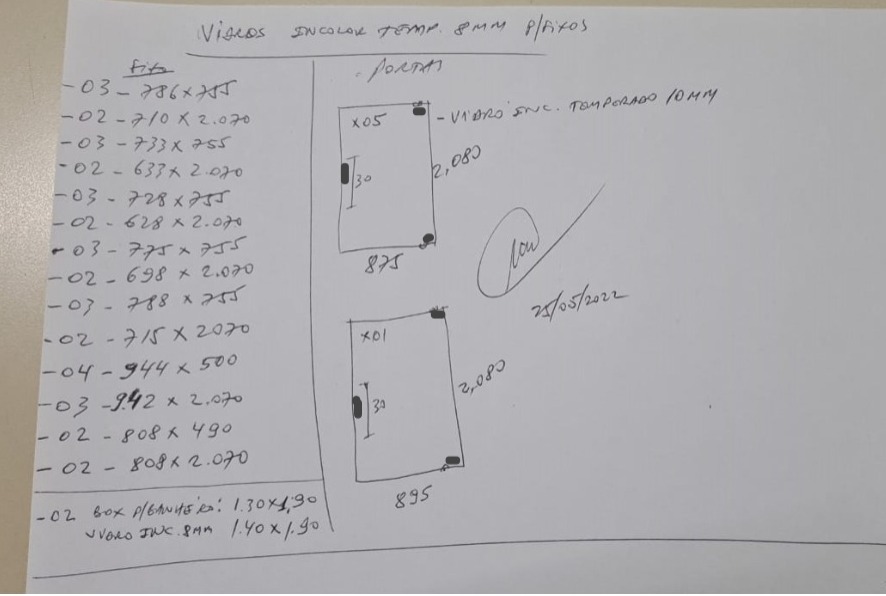 VIDROS INCOLOR TEMP. 8MM P/FIXOS
FIXO
-03-786x755
-02-710x2.070
-03-733x755
-02-633x2.070
-03-728x755
-02-628x2.070
-03-775x755
-02-698x2.070
-03-788x755
-02-715x2070
-04-944x500
-03-942x2.070
-02-808x490
-02-808x2.070
-02 BOX P/BANHEIRO: 1.30x1,90
VIDRO INC. 8MM 1.40x1.90
PORTAS
x05
-VIDRO INC. TEMPERADO 10MM
30
2,080
875
25/05/2022
x01
30
2,080
895